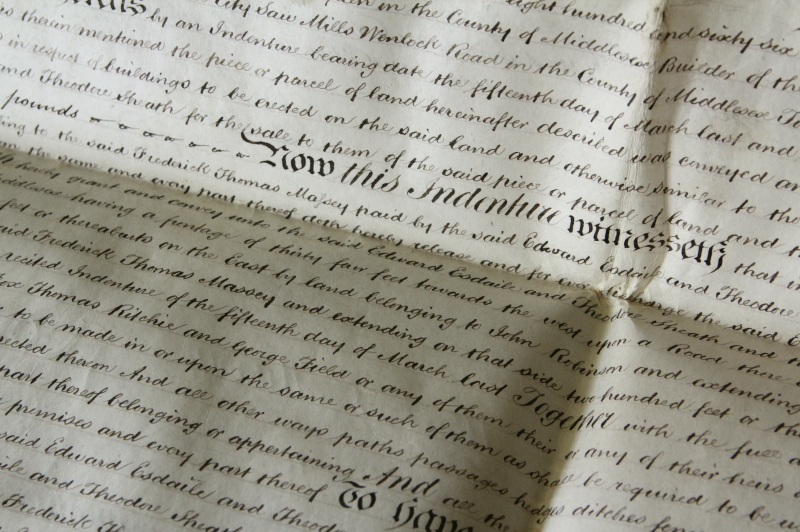 eight hundred and sixty six
City Saw Mills Wenlock Road in the County of Middlesex Builder of the
by an Indenture bearing date the fifteenth day of March last and
therein mentioned the piece or parcel of land hereinafter described was conveyed
in respect of buildings to be erected on the said land and otherwise similar to the
and Theodore Sheath for the sale to them of the said piece or parcel of land and
pounds Now this Indenture witnesseth that
to the said Frederick Thomas Massey paid by the said Edward Esdaile and Theodore
the same and every part thereof doth hereby release and for ever discharge the said
hereby grant and convey unto the said Edward Esdaile and Theodore Sheath and
Middlesex having a frontage of thirty four feet towards the west upon a Road there
feet or thereabouts on the East by land belonging to John Robinson and extending
said Frederick Thomas Massey and extending on that side two hundred feet or
recited Indenture of the fifteenth day of March last Together with the full
Thomas Ritchie and George Field or any of them their or any of their heirs
to be made in or upon the same or such of them as shall be required to be
erected thereon And all other ways paths passages hedges ditches
part thereof belonging or appertaining And all the
premises and every part thereof To Have
said Edward Esdaile and Theodore
and Theodore Sheath
Frederick